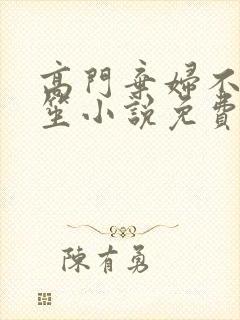 高門棄婦不
笙小說免費
陳有勇